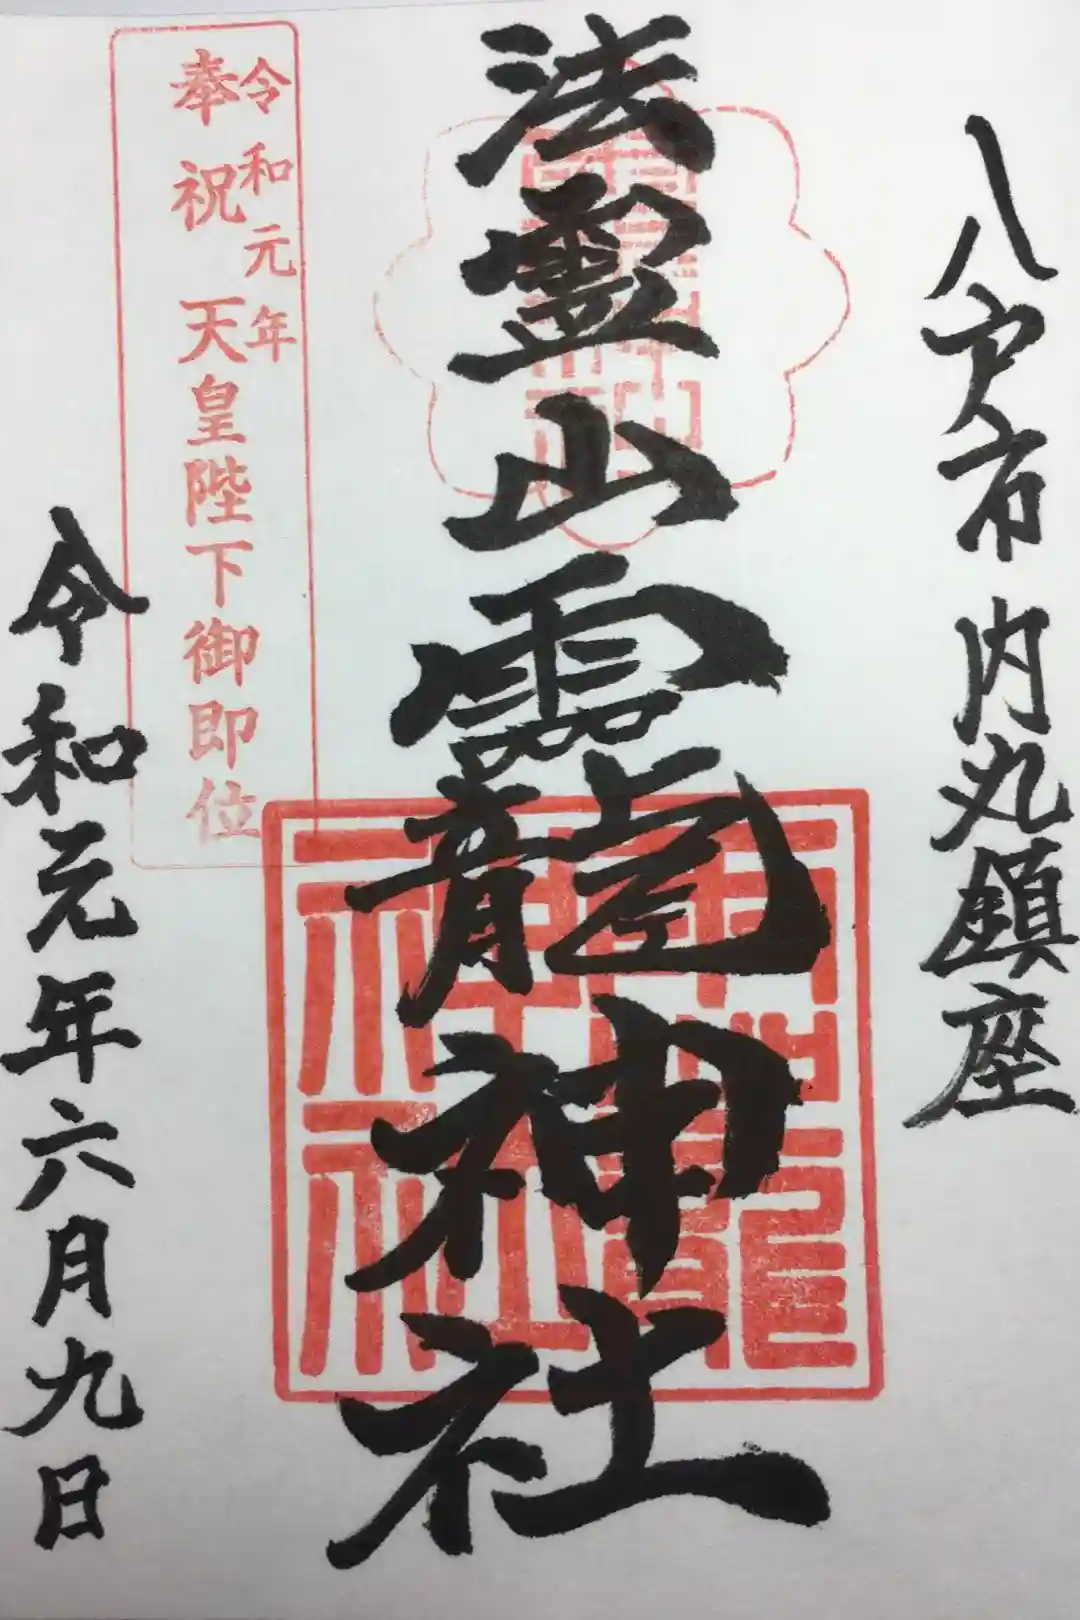 八戸市 内丸鎮座
法霊山龗神社
龗
神社
令和元年
奉祝 天皇陛下御即位
令和元年六月九日